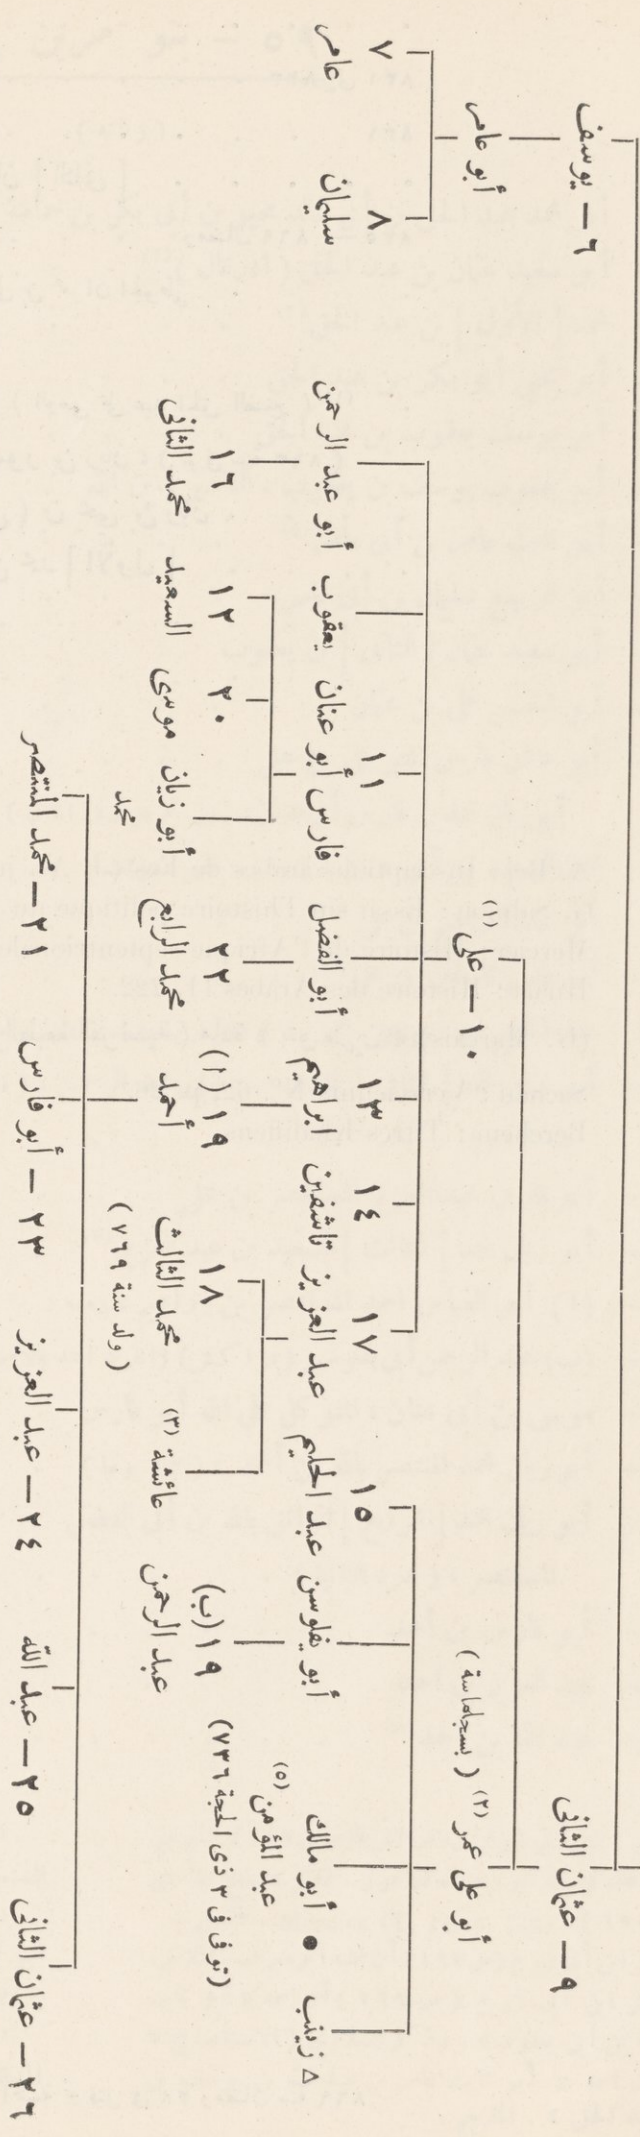 ٦ — يوسف
٩ — عثمان الثانى
أبو عامر
١٠ — على (١)
أبو على عمر (٢) ( بسجلماسة )
٧
عامر
٨
سليمان
أبو عبد الرحمن يعقوب
١١
فارس أبو عنان
أبو الفضل
١٣
ابراهيم
١٤
تاشفين
١٧
عبد العزيز
١٥
عبد الحليم
أبو يفلوسن
أبو مالك
عبد المؤمن (٥)
(توفى فى ٣ ذى الحجة ٧٣٦)
زينب
١٦
محمد الثانى
١٢
السعيد
٢٠
موسى
أبو زيان
محمد
٢٢
محمد الرابع
١٩ (ا)
أحمد
١٨
محمد الثالث
( ولد سنة ٧٦٩ )
عائشة (٣)
١٩ (ب)
عبد الرحمن
٢١ — محمد المنتصر
٢٣ — أبو فارس
٢٤ — عبد العزيز
٢٥ — عبد الله
٢٦ — عثمان الثانى